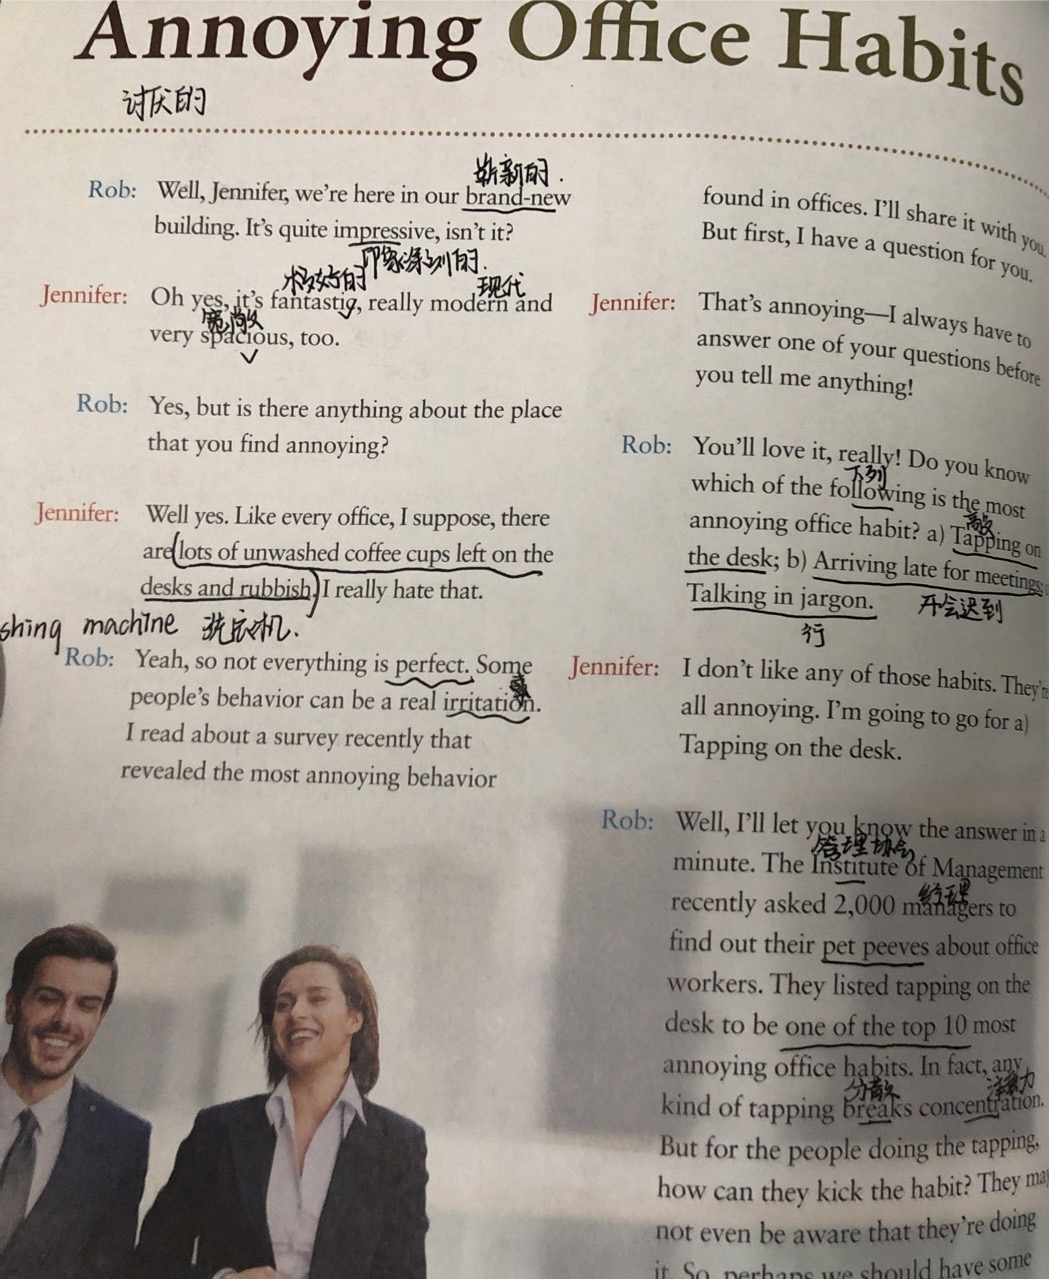 Annoying Office Habits
讨厌的
崭新的.
Rob: Well, Jennifer, we're here in our brand-new
building. It's quite impressive, isn't it?
印象深刻的.
极好的
现代
Jennifer: Oh yes, it's fantastic, really modern and
宽敞
very spacious, too.
Rob: Yes, but is there anything about the place
that you find annoying?
Jennifer: Well yes. Like every office, I suppose, there
are lots of unwashed coffee cups left on the
desks and rubbish. I really hate that.
shing machine 洗衣机.
Rob: Yeah, so not everything is perfect. Some
people's behavior can be a real irritation.
I read about a survey recently that
revealed the most annoying behavior
found in offices. I'll share it with you.
But first, I have a question for you.
Jennifer: That's annoying—I always have to
answer one of your questions before
you tell me anything!
Rob: You'll love it, really! Do you know
下列
which of the following is the most
敲
annoying office habit? a) Tapping on
the desk; b) Arriving late for meetings;
Talking in jargon.
开会迟到
行
Jennifer: I don't like any of those habits. They're
all annoying. I'm going to go for a)
Tapping on the desk.
Rob: Well, I'll let you know the answer in a
管理协会
minute. The Institute of Management
经理
recently asked 2,000 managers to
find out their pet peeves about office
workers. They listed tapping on the
desk to be one of the top 10 most
annoying office habits. In fact, any
分散
注意力
kind of tapping breaks concentration.
But for the people doing the tapping,
how can they kick the habit? They may
not even be aware that they're doing
it. So, perhaps we should have some